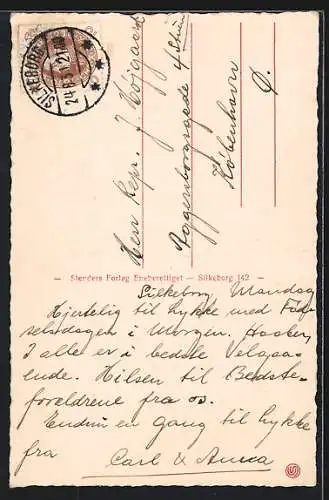 SILKEBORG
Herr Repr. J. Højgaard
4 Stuen
København
Ø.
Stenders Forlag Eneberettiget — Silkeborg 142
Silkeborg Mandag
Hjertelig til Lykke med Fød-
selsdagen i Morgen. Haaber
I alle er i bedste Velgaa-
ende. Hilsen til Bedste-
forældrene fra os.
Endnu en Gang til Lykke
fra
Carl & Anna